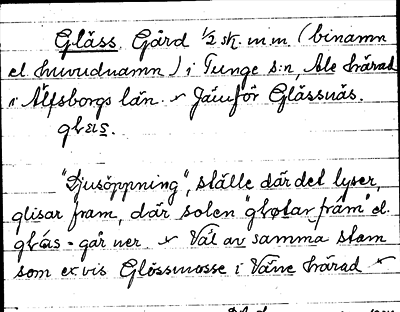 Gläss. Gård 1/2 sk. m.m. (binamn
el. huvudnamn) i Tunge s:n, Ale härad
i Älfsborgs län. Jämför Glässnäs.
"Ljusöppning", ställe där det lyser,
glisar fram, där solen "gløtar fram" el.
går ner. Väl av samma stam
som ex vis Glössmosse i Väne härad